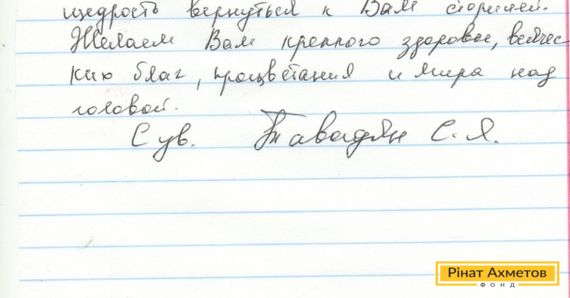 щедрость вернуться к Вам сторицей.
Желаем Вам крепкого здоровья, всячес-
ких благ, процветания и мира над
головой.
С ув. Тавадян С.Я.
Рінат Ахметов
ФОНД